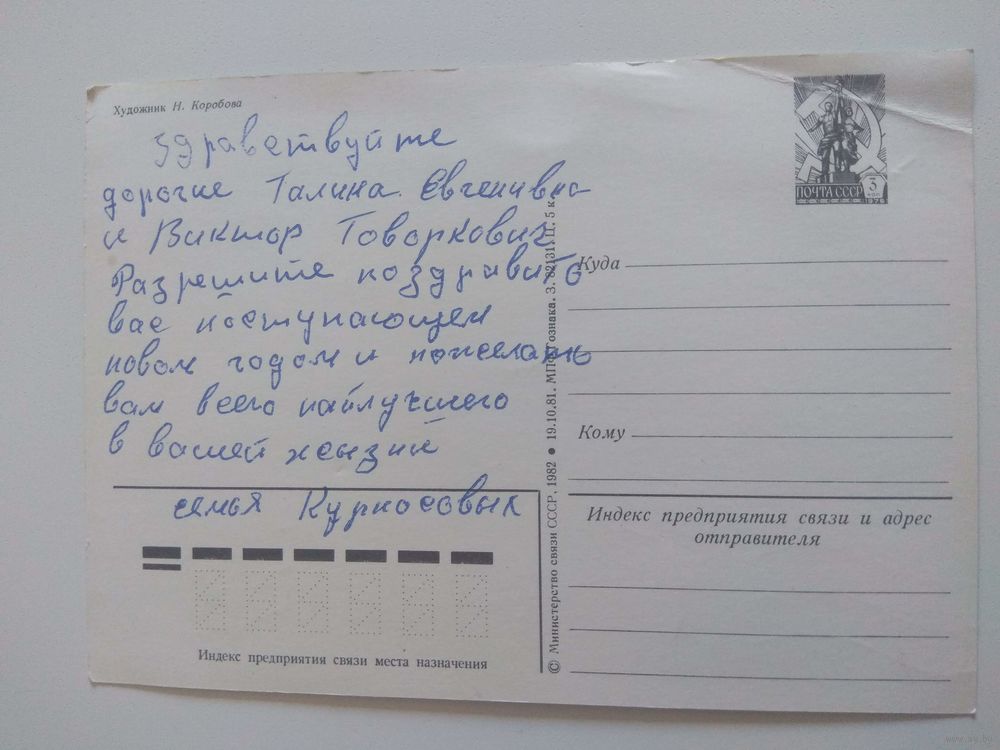 Художник Н. Коробова
здравствуйте
дорогие Галина Евгенивна
и Виктор Товаркович
Разрешите поздравить
вас поступающем
новом годом и пожелать
вам всего наилучшего
в вашей жызний
семья Курносовых
ПОЧТА СССР 3 коп
1976
Куда
Кому
Индекс предприятия связи и адрес
отправителя
Индекс предприятия связи места назначения
© Министерство связи СССР, 1982 • 19.10.81. МПФ Гознака. З. 82131. Ц. 5 к.
www.ay.by